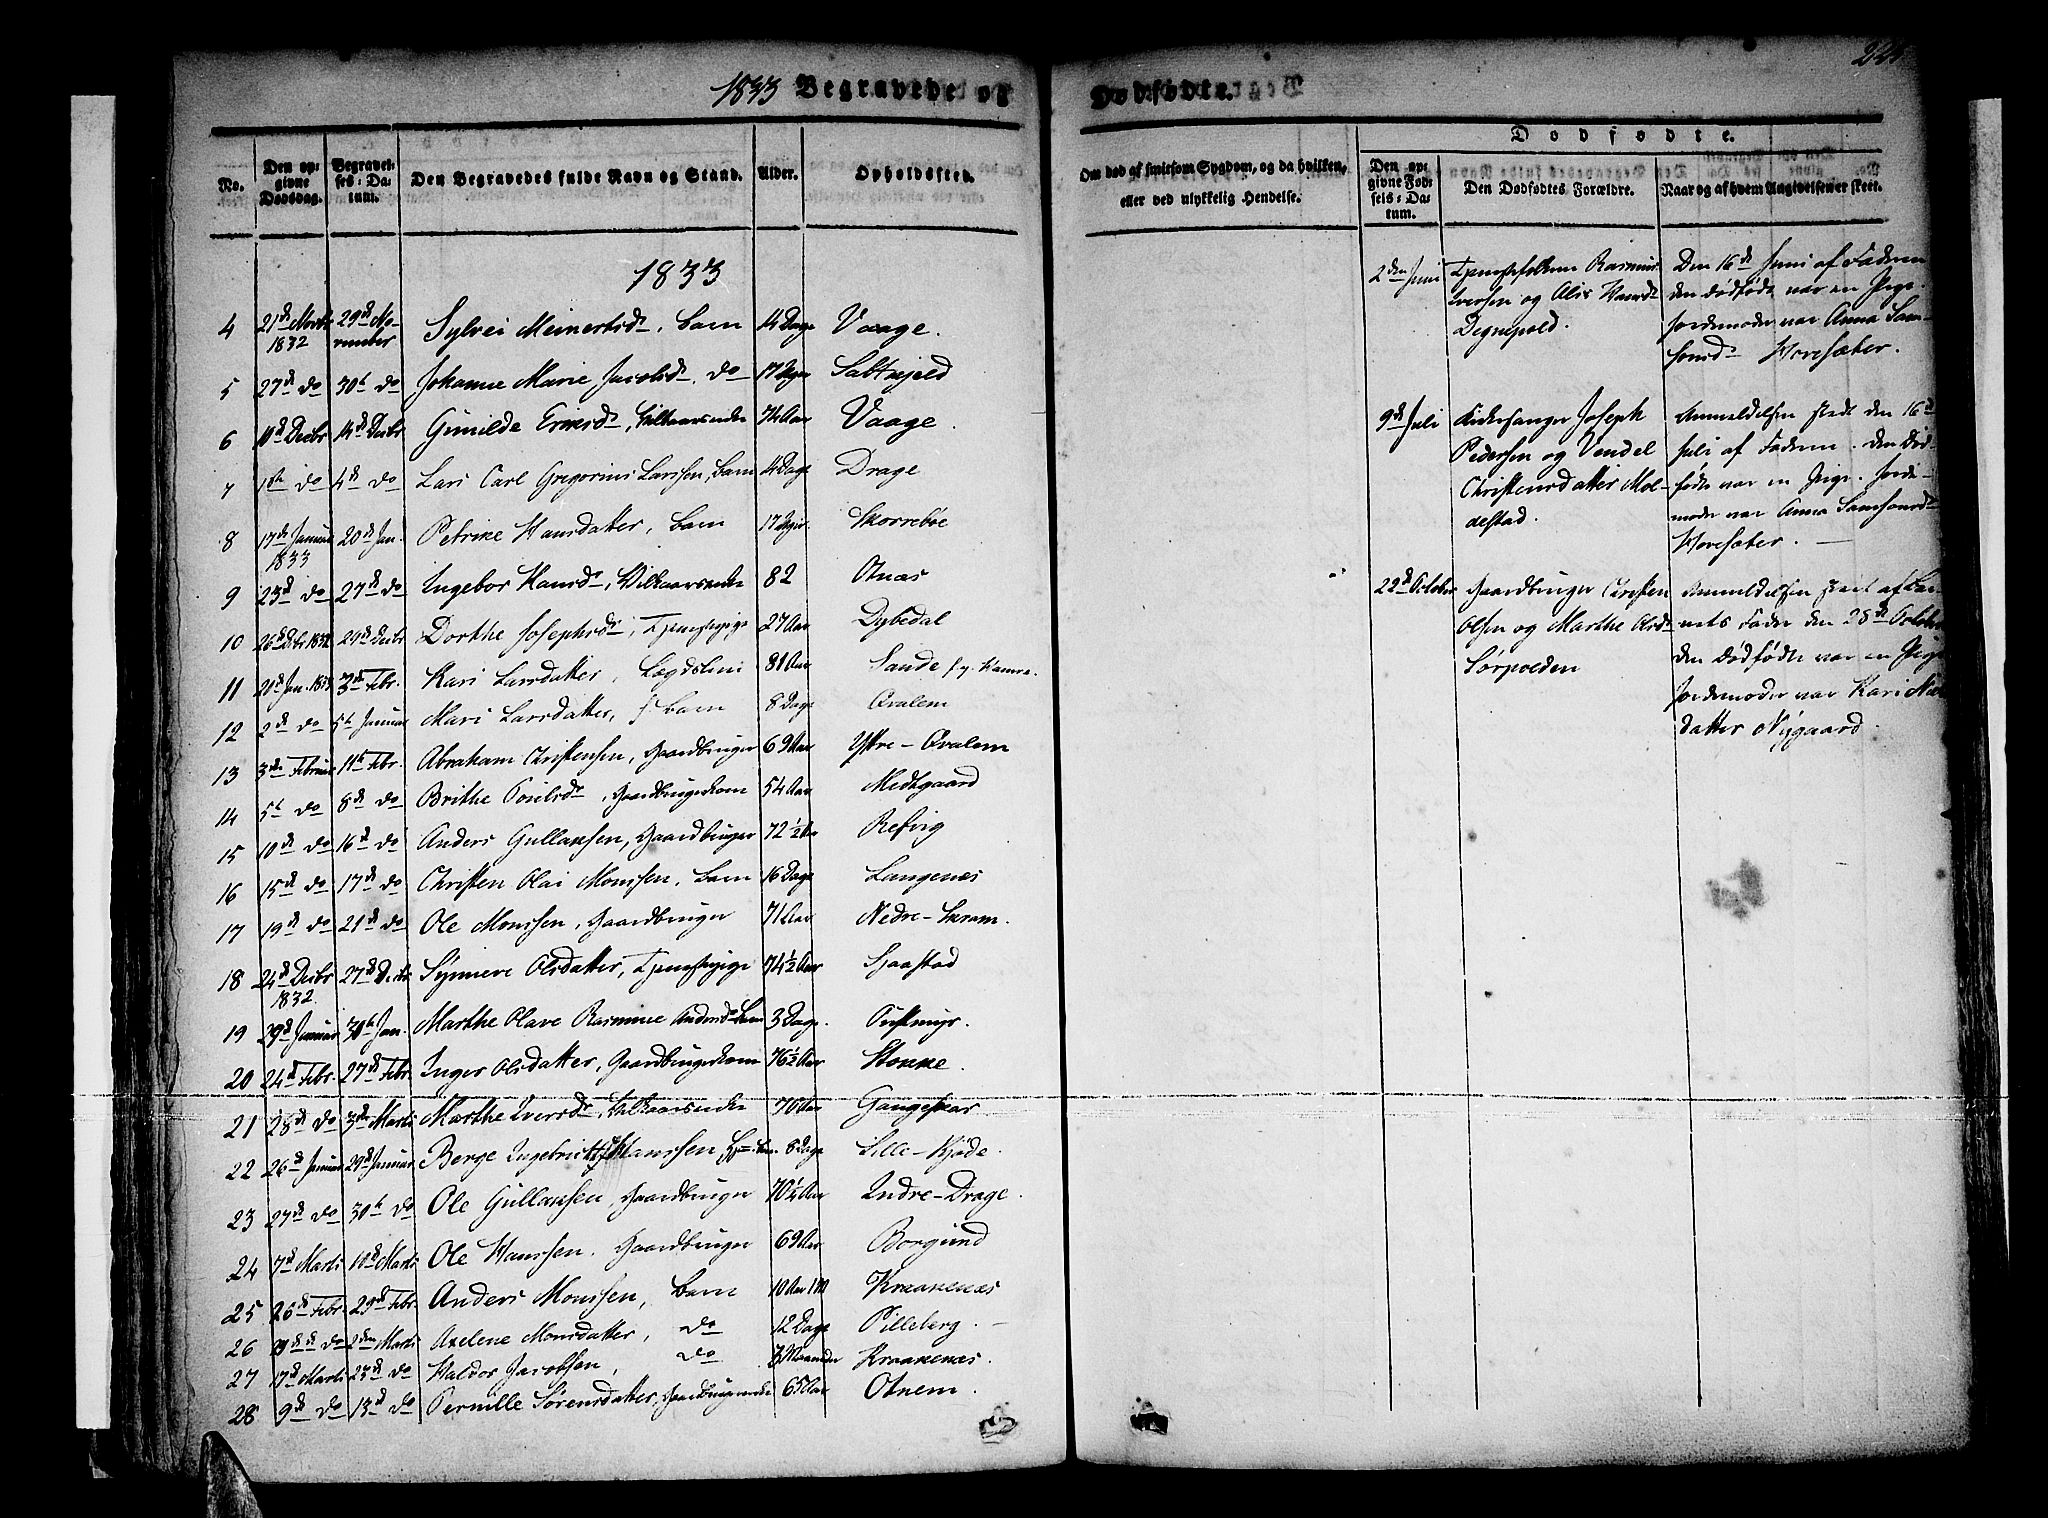 1833 Begravede og
Dødfødte.
221
No.
Den opgivne Dødsdag.
Begravelses-Datum.
Den Begravedes fulde Navn og Stand.
Alder.
Opholdssted.
Om død af smitsom Sygdom, og da hvilken,
eller ved ulykkelig Hendelse.
Dødfødte.
Den opgivne Fødsels-Datum.
Den Dødfødtes Forældre.
Naar og af hvem Angivelsen er skeet.
1833
4 21de 1832 29de November Sylvei Meinertsdr, barn 14 Dage Vaage.
5 27de do 30te do Johanne Marie Jacobsdr, do 17 Uger
6 10de Decbr 14de Decbr Gunilde Ericsdr, Vilkaarsenke 74 Aar Vaage.
7 1ste do 4de do Lars Carl Gregorius Larssen, barn 4 Dage Drage
8 17de Januar 1833 20de Jan. Petrine Hansdatter, barn 17 Uger Skorrebøe
9 23de do 27de do Ingebor Hansdr, Vilkaarsenke 82 Otnæs
10 26de Decbr 1832 29de Decbr Dorthe Josephsdr, Tjenestepige 27 Aar Dybedal
11 21de Jan. 1833 3die Febr. Kari Larsdatter, Lægdslem 81 Aar Sande
12 2de do 5te Januar Mari Larsdatter, barn 8 Dage Qvalem
13 3die Februar 11te Febr. Abraham Christensen, Gaardbruger 69 Aar Yttre-Qvalem
14 5te do 8de do Brithe Poulsdr, Gaardbrugerkone 54 Aar Midtgaard
15 10de do 16de do Anders Gullaksen, Gaardbruger 72½ Aar Refvig
16 15de do 17de do Christen Olai Monssen, barn 16 Dage Langenæs
17 19de do 21de do Ole Monssen, Gaardbruger 71 Aar Nedre-
18 24de Decbr 1832. 27de Decbr Synneve Olsdatter, Tjenestepige 74½ Aar Sjaastad
19 29de Januar 30te Jan. Marthe Olave Rasmine Andersdr barn 3 Dage.
20 24de Febr. 27de Febr. Inger Olsdatter, Gaardbrugerkone 76½ Aar Stokke.
21 28de do 3die Marti Marthe Iversdr, Vilkaarsenke 70 Aar Gangeskar
22 26de Januar 29de Januar Berge Ingebrigt Hanssen 8 Dage Lille-Kjøde.
23 27de do 30te do Ole Gullaksen, Gaardbruger 70¼ Aar Indre-Drage.
24 7de Marti 10de Marti Ole Hanssen, Gaardbruger 69 Aar Borgund
25 26de Febr. 29de Febr. Anders Monssen, barn 10 Aar 1 M Kraakenæs
26 do 2den Marti Axelene Monsdatter, do 12 Dage Pilleberg.
27 17de Marti 23de do Haldor Jacobsen, do 3 Maaneder Kraakenæs.
28 9de do 13de do Pernille Sørensdatter, 65 Aar Otnem.
2den Juni
Tjenestefolkene Rasmus
Iversen og Alis Hansdr
Degnepold.
Den 16de Juni af Faderen
den dødfødte var en Pige.
Jordemoder var Anna Sam-
sonsdr Hovesæter.
9de Juli
Kirkesanger Joseph
Pedersen og Vendel
Christensdatter Mol-
destad.
Anmeldelsen skede den 16de
Juli af Faderen. den Død-
fødte var en Pige. Jorde-
moder var Anna Samsonsdr
Hovesæter.
22de October
Gaardbruger Christen
Olsen og Marthe Olsdr
Sørpolden
Anmeldelsen skeet af Bar-
nets Fader den 28de October
den dødfødte var en Pige
Jordemoder var Kari
datter Nygaard.